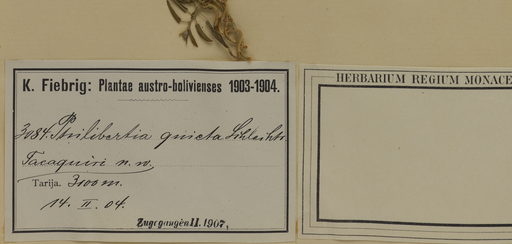 K. Fiebrig: Plantae austro-bolivienses 1903-1904.
3084. Philibertia quieta Schlecht.
Tacaquiri n. w.
Tarija. 3100 m.
14. II. 04.
Zugegangen II. 1907,
HERBARIUM REGIUM MONACE